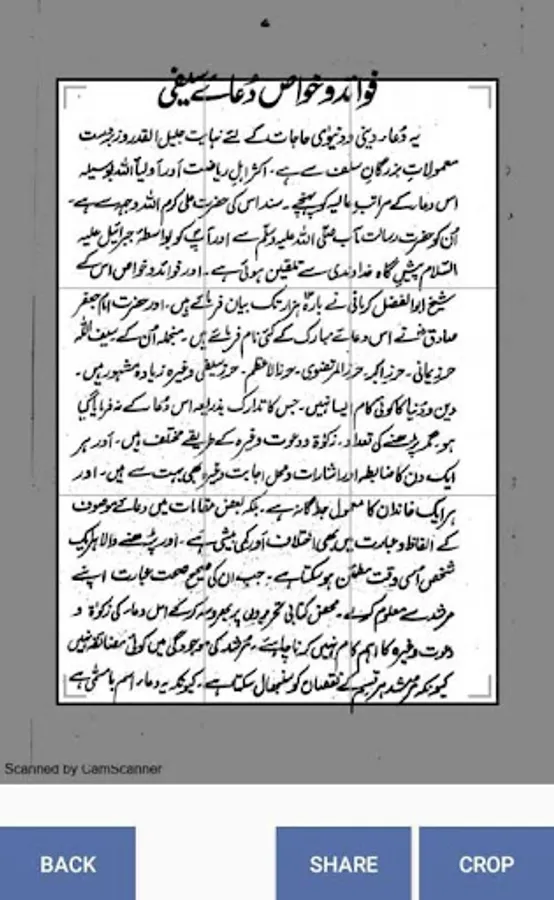 فوائد و خواص دُعائے سیفی
یہ دُعاء دینی و دنیوی حاجات کے لئے نہایت جلیل القدر و زبردست
معمولاتِ بزرگانِ سلف سے ہے۔ اکثر اہلِ ریاضت اَور اَولیاَ اللہ بوسیلہ
اس دعاء کے مراتبِ عالیہ کو پہنچے۔ سند اس کی حضرت علی کرم اللہ وجہہ سے ہے۔
اُن کو حضرت رسالت مآب صلّی اللہ علیہ وسلّم سے اور آپ کو بواسطۂ جبرائیل علیہ
السّلام پیش گاہ خداوندی سے تلقین ہوئی ہے۔ اور فوائد و خواص اس کے
شیخ ابوالفضل کرمانی نے بارہ ہزار تک بیان فرمائے ہیں۔ اور حضرت امام جعفر
صادق نے اس دعائے مبارک کے کئی نام فرمائے ہیں۔ منجملہ اُن کے سیف اللہ
حرزِ یمانی۔ حرزِ اکبر۔ حرز المرتضوی۔ حرز الاعظم۔ حرز سیفی وغیرہ زیادہ مشہور ہیں۔
دین و دُنیا کا کوئی کام ایسا نہیں۔ جس کا تدارک بذریعہ اس دُعاء کے نہ فرمایا گیا
ہو۔ مگر پڑھنے کی تعداد۔ زکوٰۃ و دعوت وغیرہ کے طریقے مختلف ہیں۔ اَور ہر
ایک دن کا ضابطہ اور اشارات و محل اجابت وغیرہ بھی بہت سے ہیں۔ اور
ہر ایک خاندان کا معمول جداگانہ ہے۔ بلکہ بعض مقامات میں دعائے موصوف
کے الفاظ و عبارت میں بھی اختلاف اَور کمی بیشی ہے۔ اَور پڑھنے والا ہر ایک
شخص اُسی وقت مطمئن ہو سکتا ہے۔ جب ان کی صحیح صحت عبارت اپنے
مرشد سے معلوم کرے۔ محض کتابی تحریروں پر بھروسہ کر کے اس دعاء کی زکوٰۃ و
دعوت وغیرہ کا اہم کام نہیں کرنا چاہئے۔ مُرشد کی موجودگی میں کوئی مضائقہ نہیں
کیونکہ مُرشد ہر قسم کے نقصان کو سنبھال سکتا ہے۔ کیونکہ یہ دعاء اسم بامسمّٰی ہے
Scanned by CamScanner
BACK
SHARE
CROP